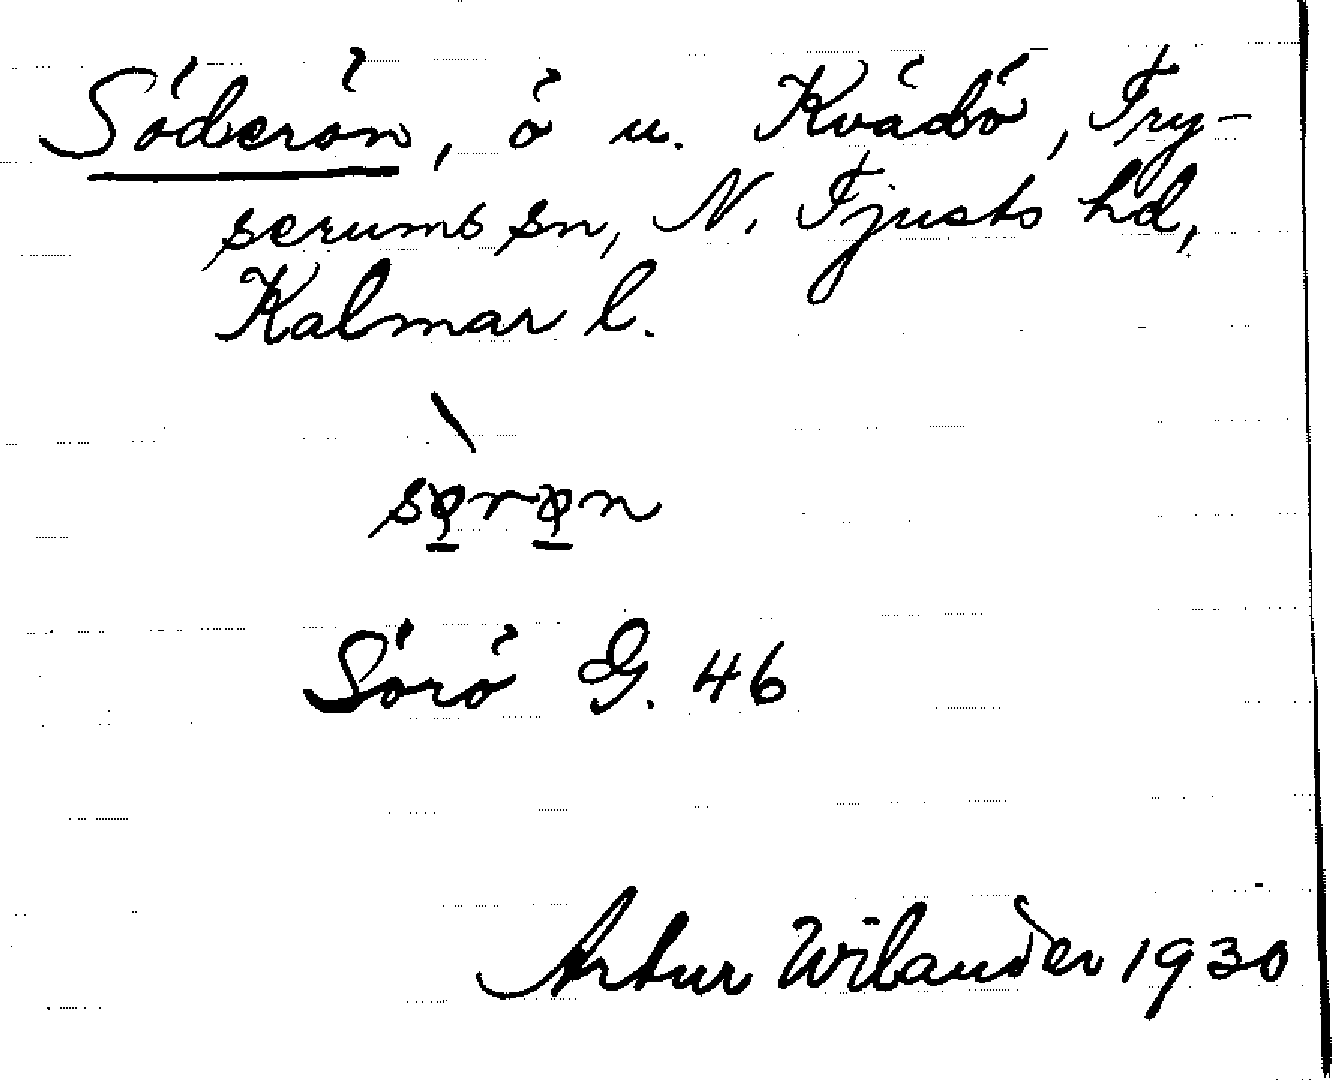 Söderön, ö u. Kvädö, Try-
serums sn, N. Tjusts hd,
Kalmar l.
Sörö G. 46
Artur Wilander 1930